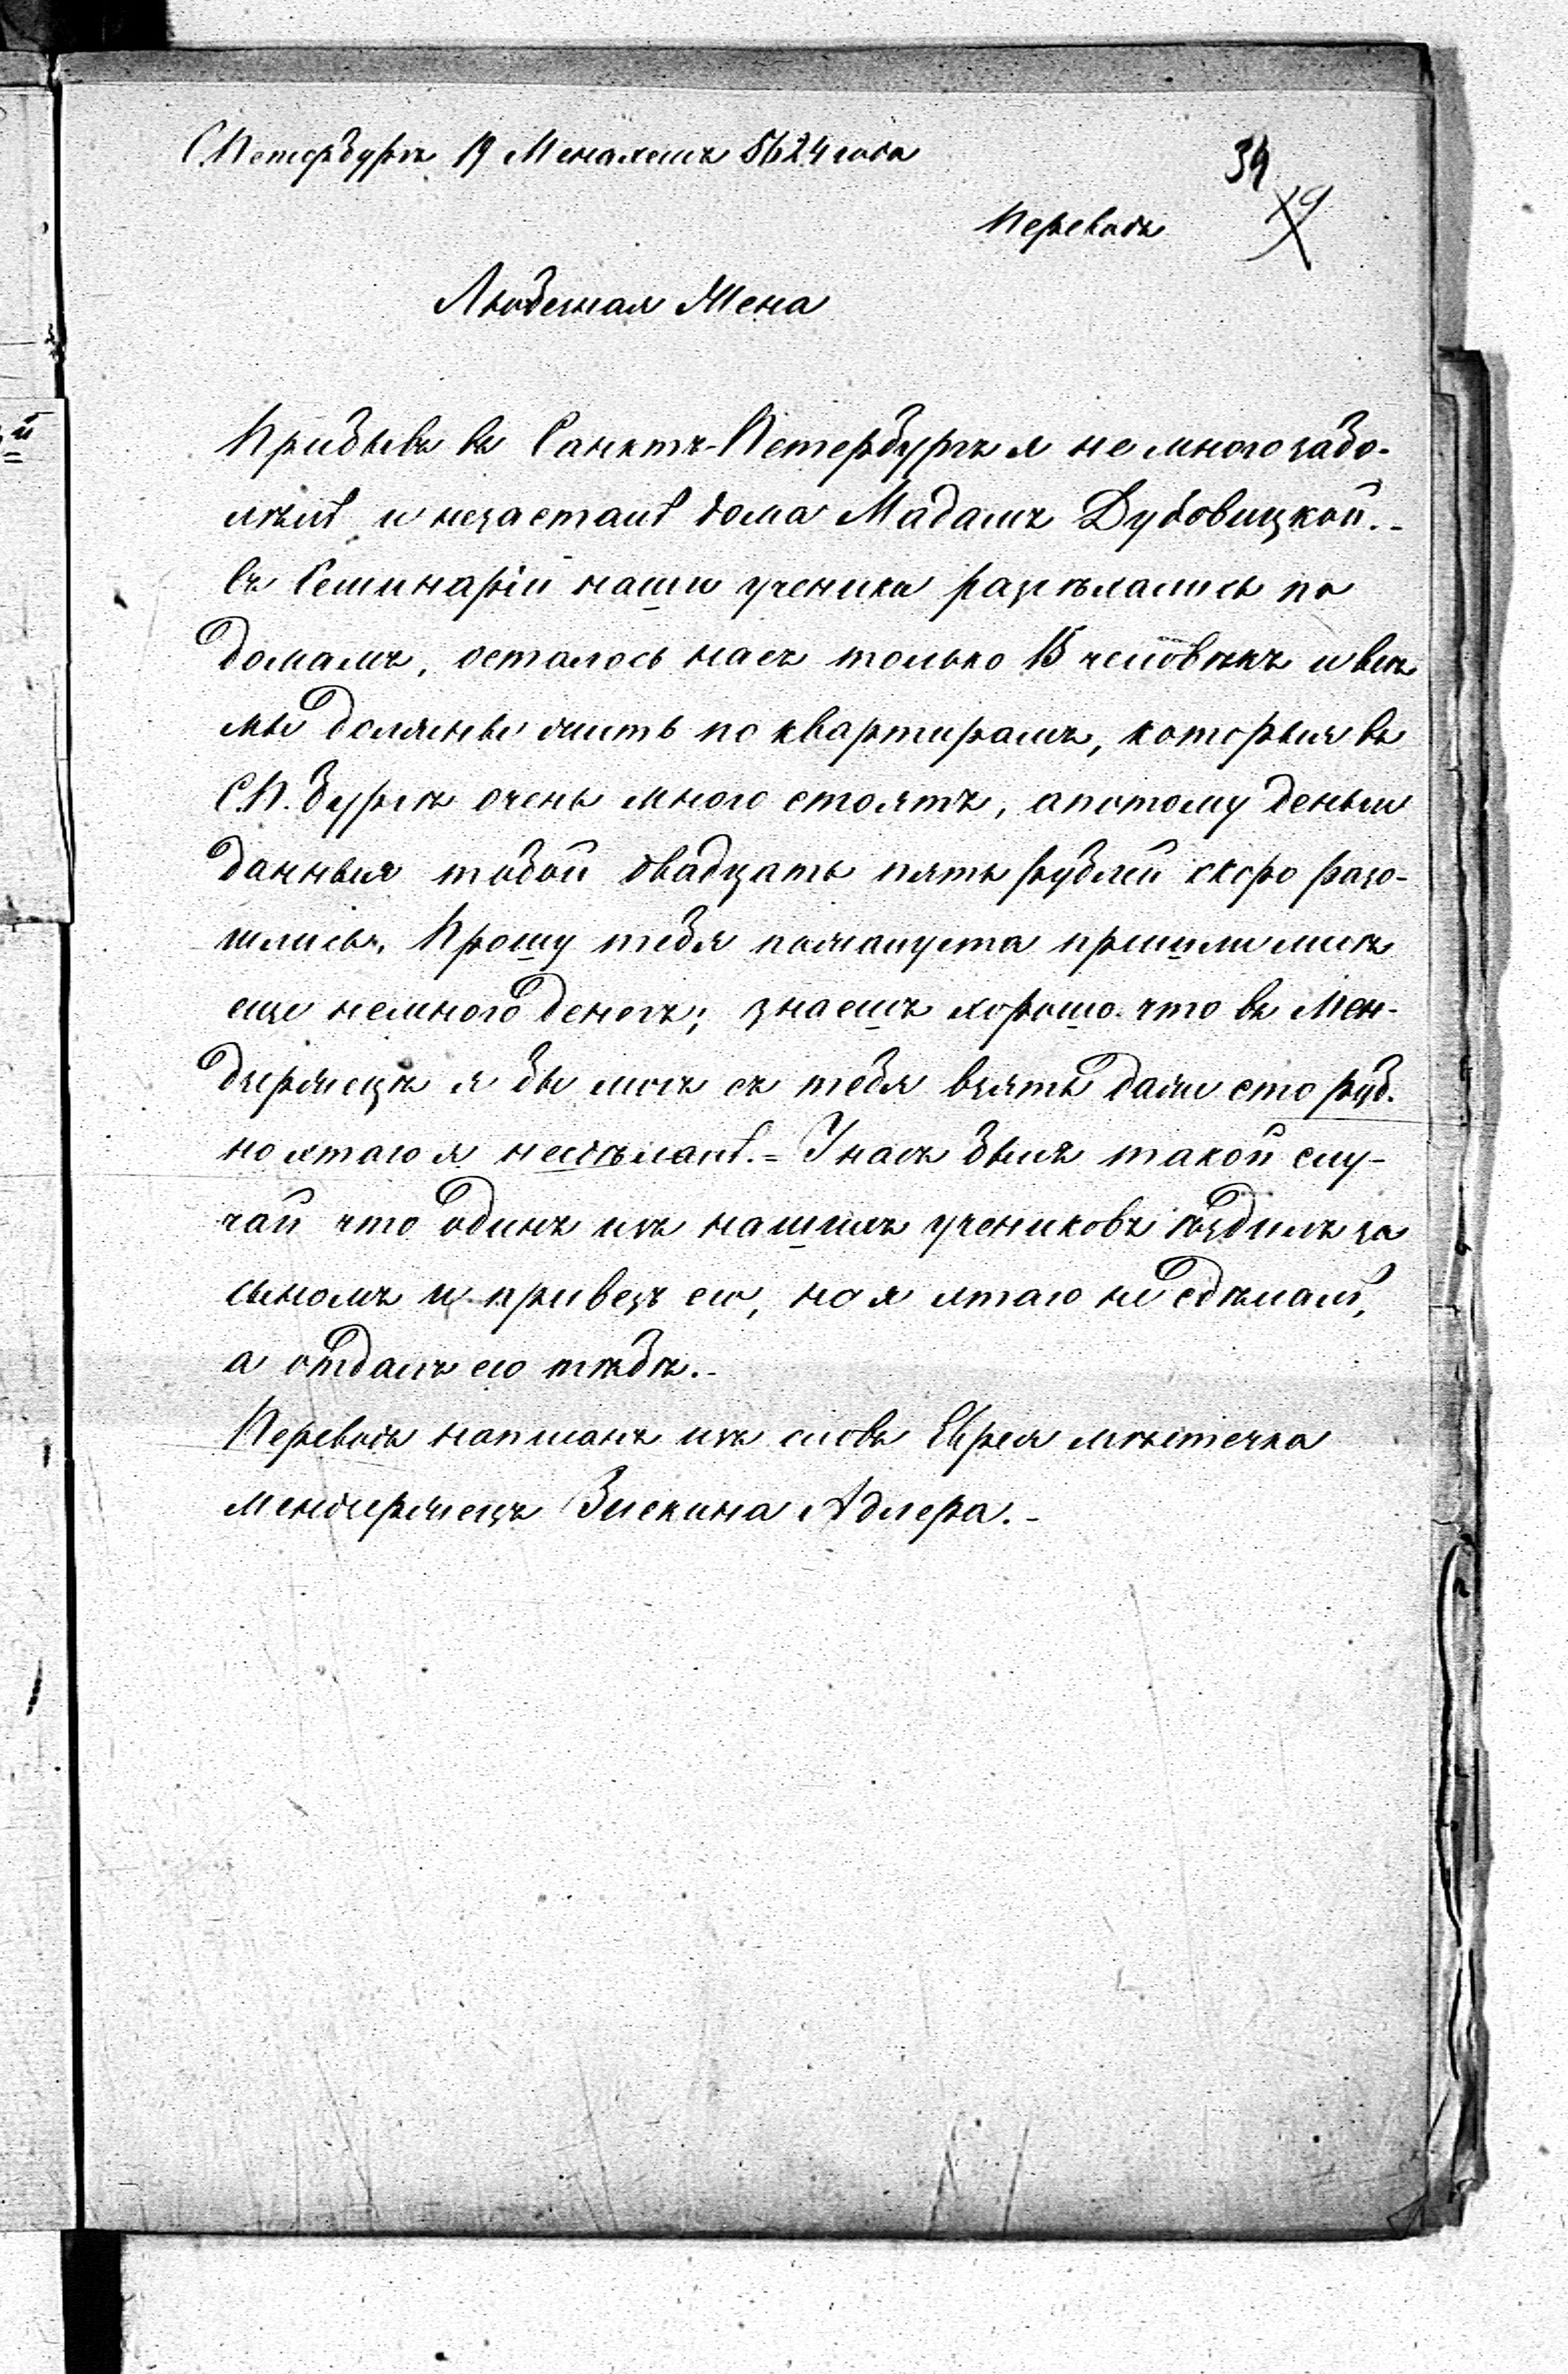 С.Петербургъ 19 Менахемъ 5624 года
34
19
Переводъ
Любезная Жена
Прибывъ въ Санктъ-Петербургъ я не много забо-
лѣлъ и незасталъ дома Мадамъ Дубовицкой.-
въ Семинаріи наши ученики разъѣхались по
домамъ, осталось насъ только 15 человѣкъ и всѣ
мы должны жить по квартирамъ, которыя въ
С.П.бургѣ очень много стоятъ, апотому деньги
данныя тобой двадцать пять рублей скоро разо-
шлись. Прошу тебя пожалуста пришли мнѣ
еще немного денегъ; знаешъ хорошо что въ Мен-
джержецѣ я бы могъ съ тебя взять даже сто руб.
но этаго я несдѣлалъ.= У насъ былъ такой слу-
чай что одинъ изъ нашихъ учениковъ ѣздилъ за
сыномъ и привезъ его, но я этаго не сдѣлалъ,
а отдалъ его тѣбѣ.-
Переводъ написанъ изъ словъ Еврея мѣстечка
Менджержецъ Зискина Адлера.-